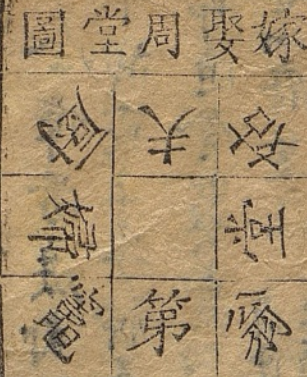 嫁娶周堂圖
姑夫厨
堂婦
翁第竈